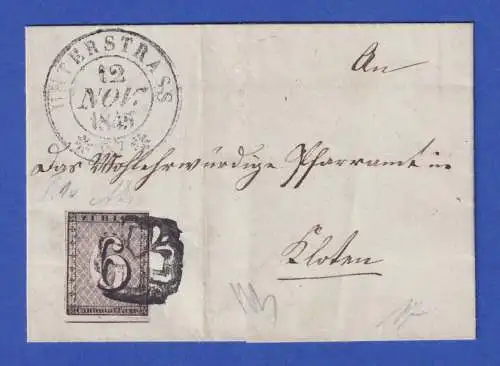 UNTERSTRASS
12
NOV.
1848
An
Das Wohlehrwürdige Pfarramt in
ZÜRICH
6
Kloten